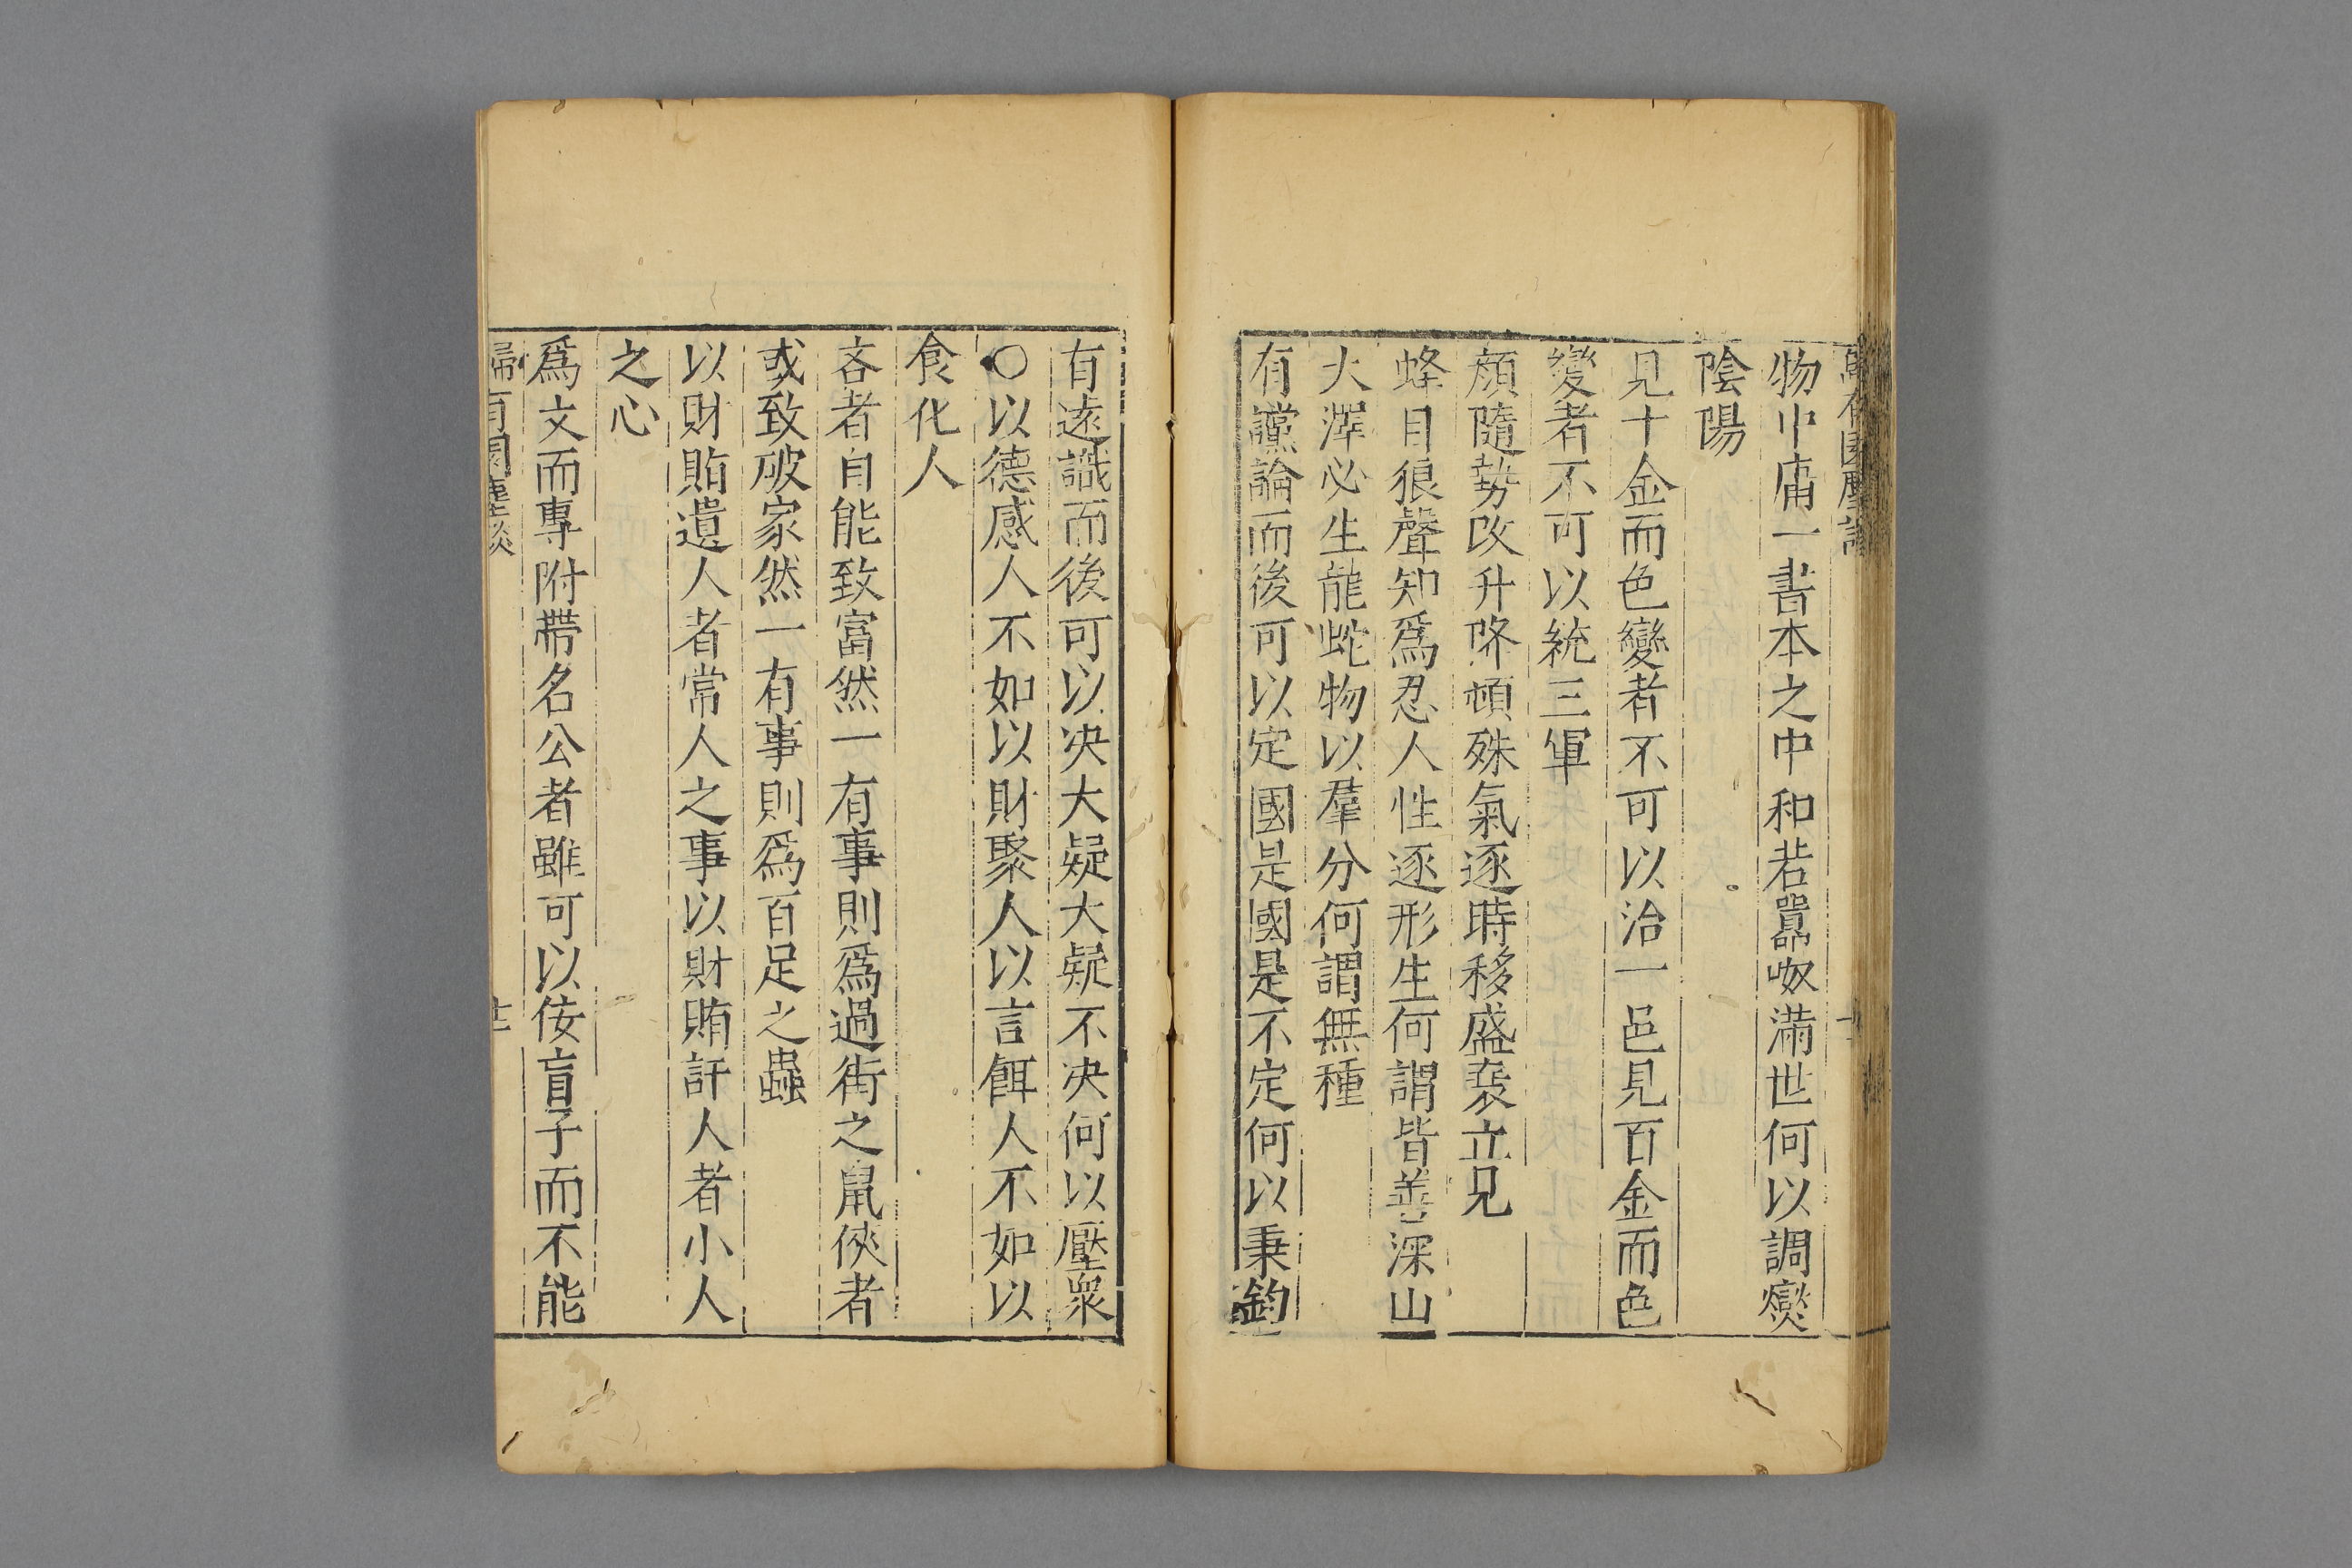 歸有園麈談
物中庸一書本之中和若嚣呶滿世何以調燮
陰陽
見十金而色變者不可以治一邑見百金而色
變者不可以統三軍
顏隨勢改升降頓殊氣逐時移盛衰立見
蜂目狼聲知爲忍人性逐形生何謂皆善深山
大澤必生龍蛇物以羣分何謂無種
有讜論而後可以定國是國是不定何以秉鈞
有遠識而後可以决大疑大疑不决何以壓衆
○以德感人不如以財聚人以言餌人不如以
食化人
吝者自能致富然一有事則爲過街之鼠俠者
或致破家然一有事則爲百足之蟲
以財賄遺人者常人之事以財賄訐人者小人
之心
爲文而專附帶名公者雖可以佞盲子而不能
歸有園麈談